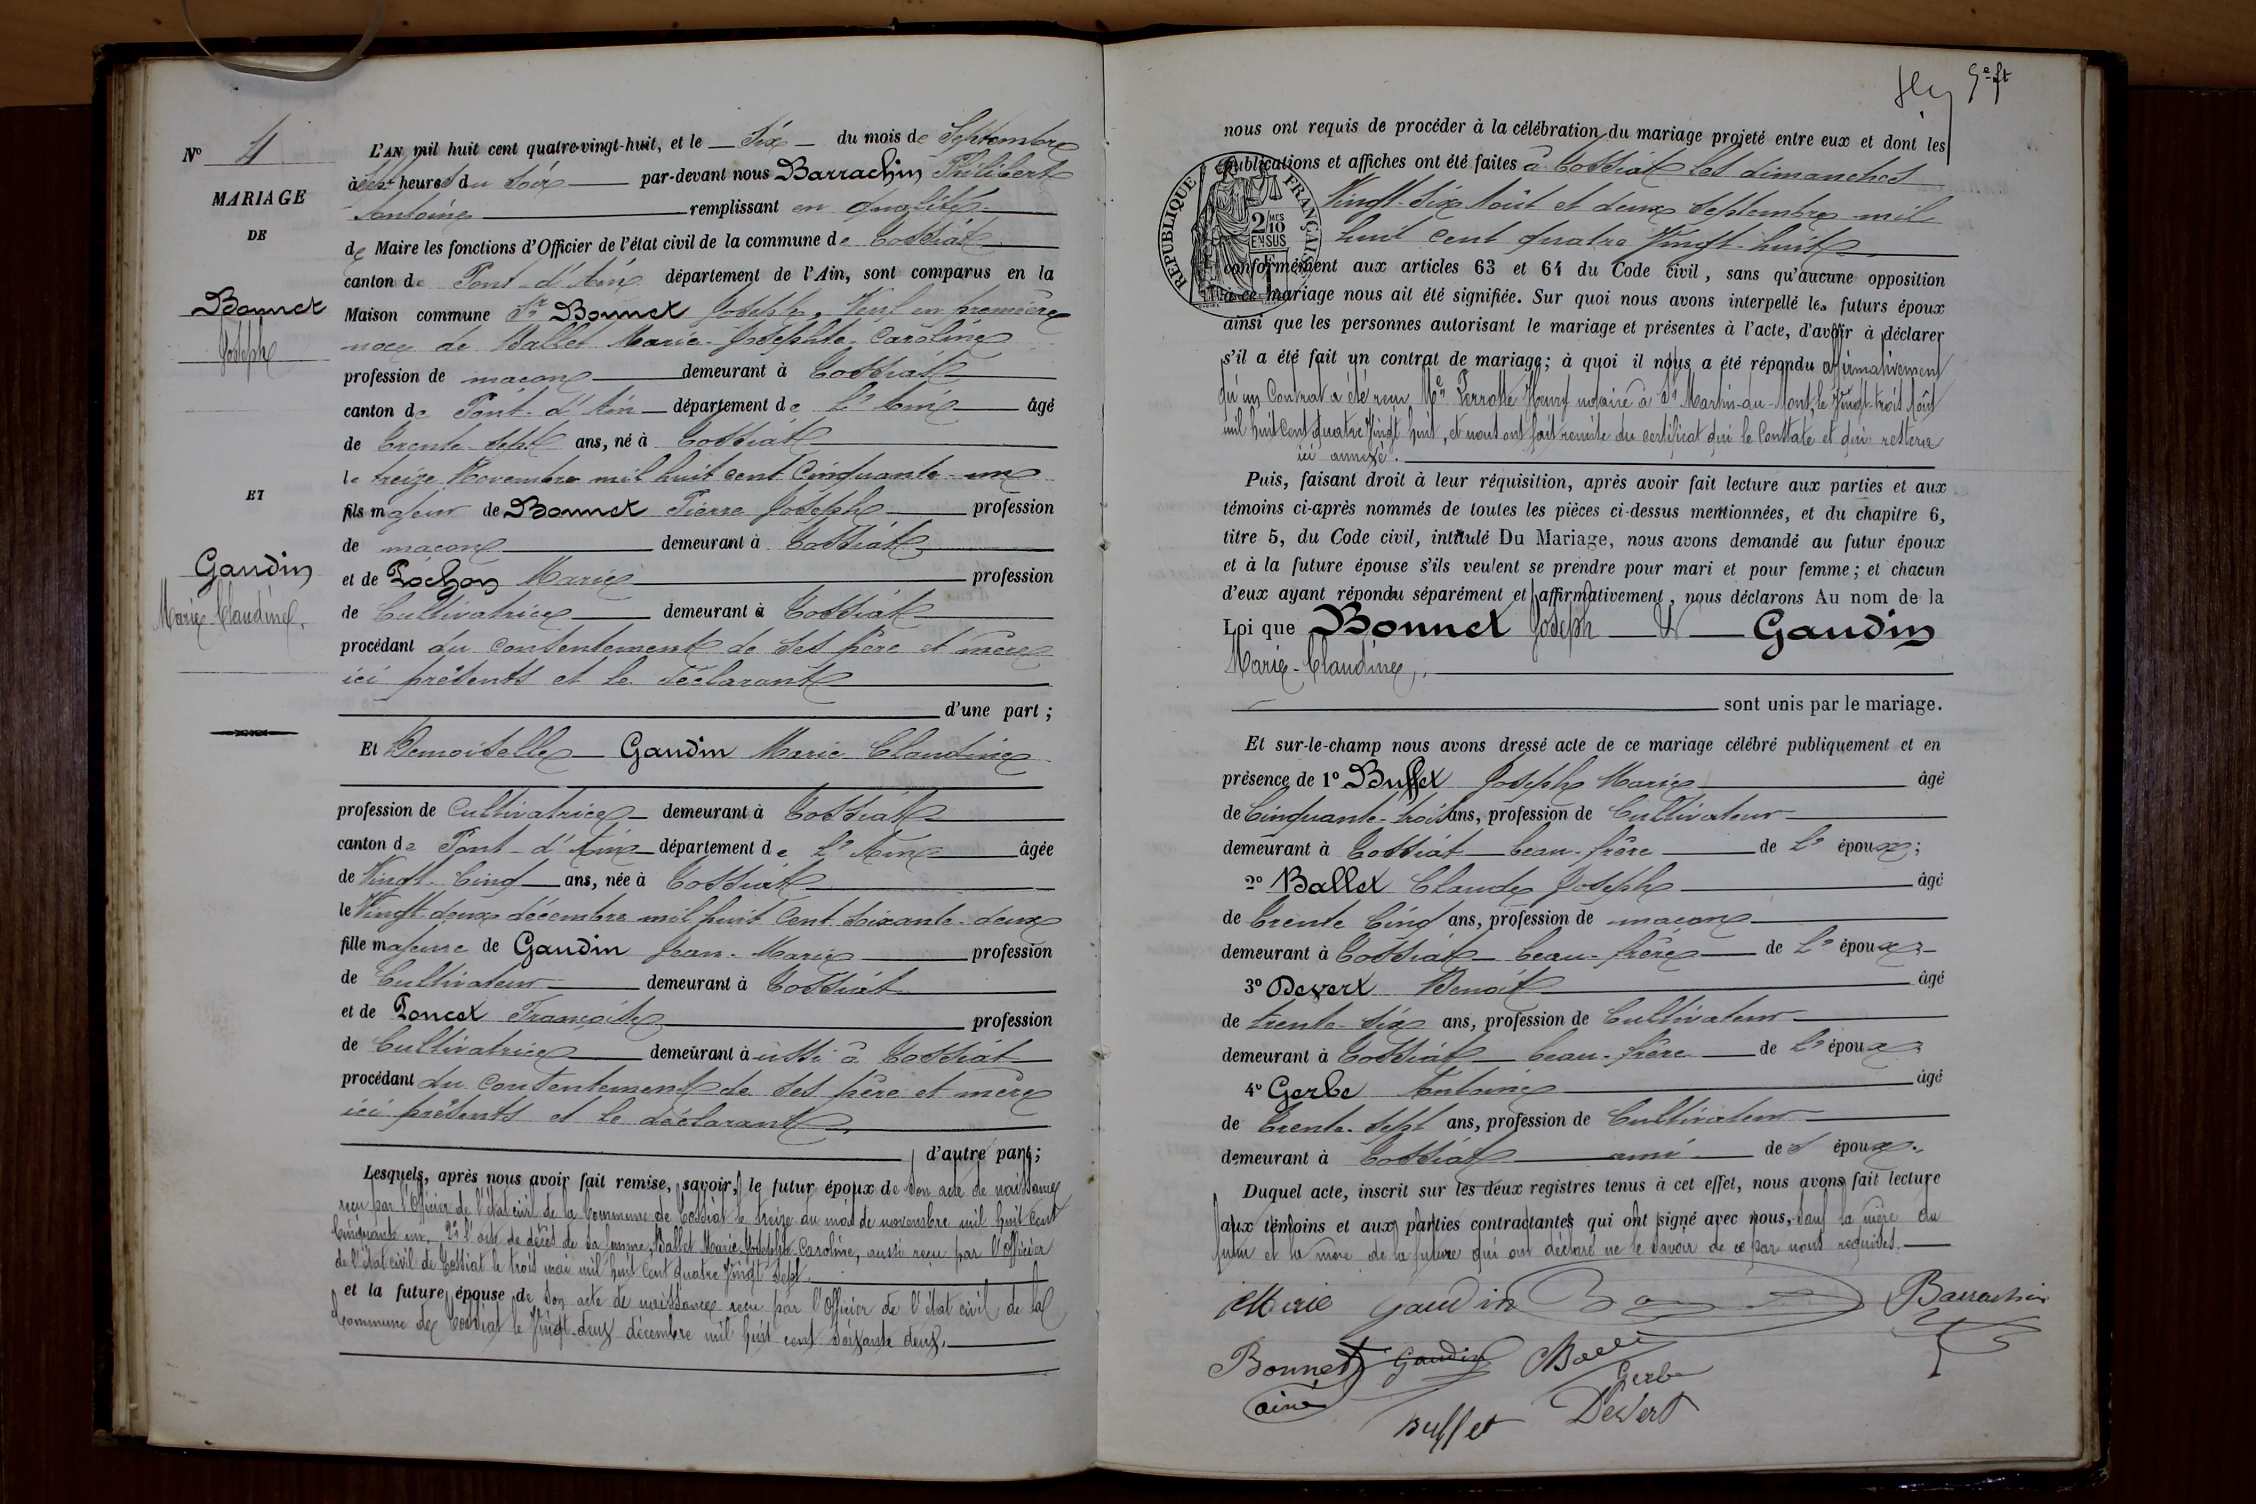 N° 4
MARIAGE
DE
Bonnet
Joseph
ET
Gaudin
Marie-Claudine.
L'AN mil huit cent quatre-vingt-huit, et le six du mois de Septembre
à sept heures du soir par-devant nous Barrachin Philibert
Antoine remplissant en qualité
de Maire les fonctions d'Officier de l'état civil de la commune de Tossiat
canton de Pont-d'Ain département de l'Ain, sont comparus en la
Maison commune Sr Bonnet Joseph, Veuf en première
noce de Ballet Marie-Josephte-Caroline
profession de maçon demeurant à Tossiat
canton de Pont-d'Ain département de l'Ain âgé
de trente-sept ans, né à Tossiat
le treize Novembre mil huit cent cinquante-un
fils majeur de Bonnet Pierre Joseph profession
de maçon demeurant à Tossiat
et de Pochon Marie profession
de Cultivatrice demeurant à Tossiat
procédant du consentement de ses père et mère
ici présents et le déclarant
d'une part ;
Et Demoiselle Gaudin Marie Claudine
profession de Cultivatrice demeurant à Tossiat
canton de Pont-d'Ain département de l'Ain âgée
de Vingt-Cinq ans, née à Tossiat
le Vingt-deux décembre mil huit cent soixante-deux
fille majeure de Gaudin Jean-Marie profession
de Cultivateur demeurant à Tossiat
et de Poncet Françoise profession
de Cultivatrice demeurant aussi à Tossiat
procédant du consentement de ses père et mère
ici présents et le déclarant
d'autre part ;
Lesquels, après nous avoir fait remise, savoir, le futur époux de son acte de naissance
reçu par l'Officier de l'état civil de la Commune de Tossiat le treize du mois de novembre mil huit cent
cinquante un, 2° l'acte de décès de sa femme, Ballet Marie-Josephte-Caroline, aussi reçu par l'Officier
de l'état civil de Tossiat le trois mai mil huit cent quatre vingt sept.
et la future épouse de son acte de naissance reçu par l'Officier de l'état civil de la
Commune de Tossiat le Vingt-deux décembre mil huit cent soixante deux.
nous ont requis de procéder à la célébration du mariage projeté entre eux et dont les
publications et affiches ont été faites à Tossiat les dimanches
Vingt-six Août et deux septembre mil
huit cent quatre Vingt-huit
RÉPUBLIQUE FRANÇAISE
2/10
EN SUS
conformément aux articles 63 et 64 du Code civil, sans qu'aucune opposition
à ce mariage nous ait été signifiée. Sur quoi nous avons interpellé les futurs époux
ainsi que les personnes autorisant le mariage et présentes à l'acte, d'avoir à déclarer
s'il a été fait un contrat de mariage ; à quoi il nous a été répondu affirmativement
qu'un Contrat a été reçu Me Perrotte Henry notaire à St Martin-du-Mont, le Vingt-trois Août
mil huit cent quatre Vingt huit, et nous ont fait remise du certificat qui le constate et qui restera
ici annexé.
Puis, faisant droit à leur réquisition, après avoir fait lecture aux parties et aux
témoins ci-après nommés de toutes les pièces ci-dessus mentionnées, et du chapitre 6,
titre 5, du Code civil, intitulé Du Mariage, nous avons demandé au futur époux
et à la future épouse s'ils veulent se prendre pour mari et pour femme ; et chacun
d'eux ayant répondu séparément et affirmativement, nous déclarons Au nom de la
Loi que Bonnet Joseph & Gaudin
Marie-Claudine,
sont unis par le mariage.
Et sur-le-champ nous avons dressé acte de ce mariage célébré publiquement et en
présence de 1° Buffet Joseph Marie âgé
de Cinquante-trois ans, profession de Cultivateur
demeurant à Tossiat beau-frère de l'époux ;
2° Ballet Claude Joseph âgé
de trente Cinq ans, profession de maçon
demeurant à Tossiat beau-frère de l'époux ;
3° Devert Benoît âgé
de trente-six ans, profession de Cultivateur
demeurant à Tossiat beau-frère de l'époux ;
4° Gerbe Antoine âgé
de trente-sept ans, profession de Cultivateur
demeurant à Tossiat ami des époux.
Duquel acte, inscrit sur les deux registres tenus à cet effet, nous avons fait lecture
aux témoins et aux parties contractantes qui ont signé avec nous, sauf la mère du
futur et la mère de la future qui ont déclaré ne le savoir de ce par nous requises.
Marie Gaudin Barrachin
Bonnet Gaudin
Gerbe
ainé
Buffet Devert